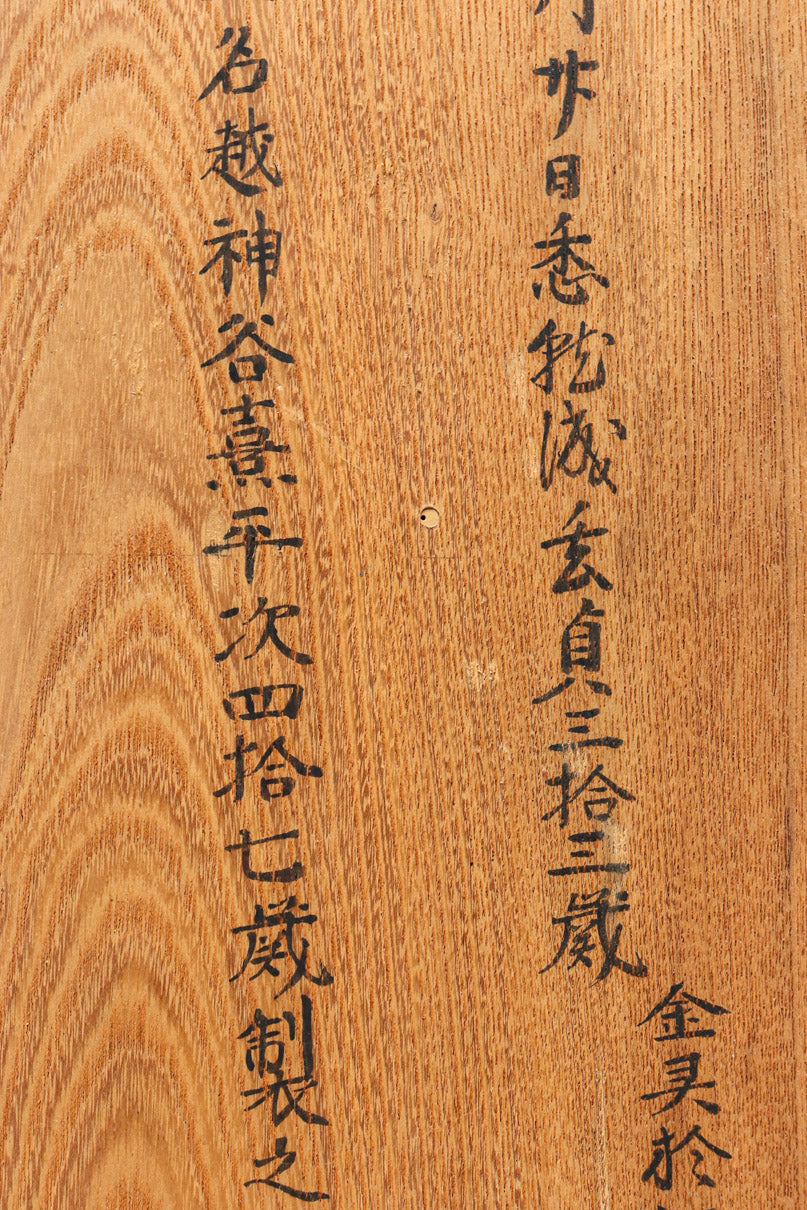 金具於
月廿日悉就貞三拾三歳
名越神谷熹平次四拾七歳製之